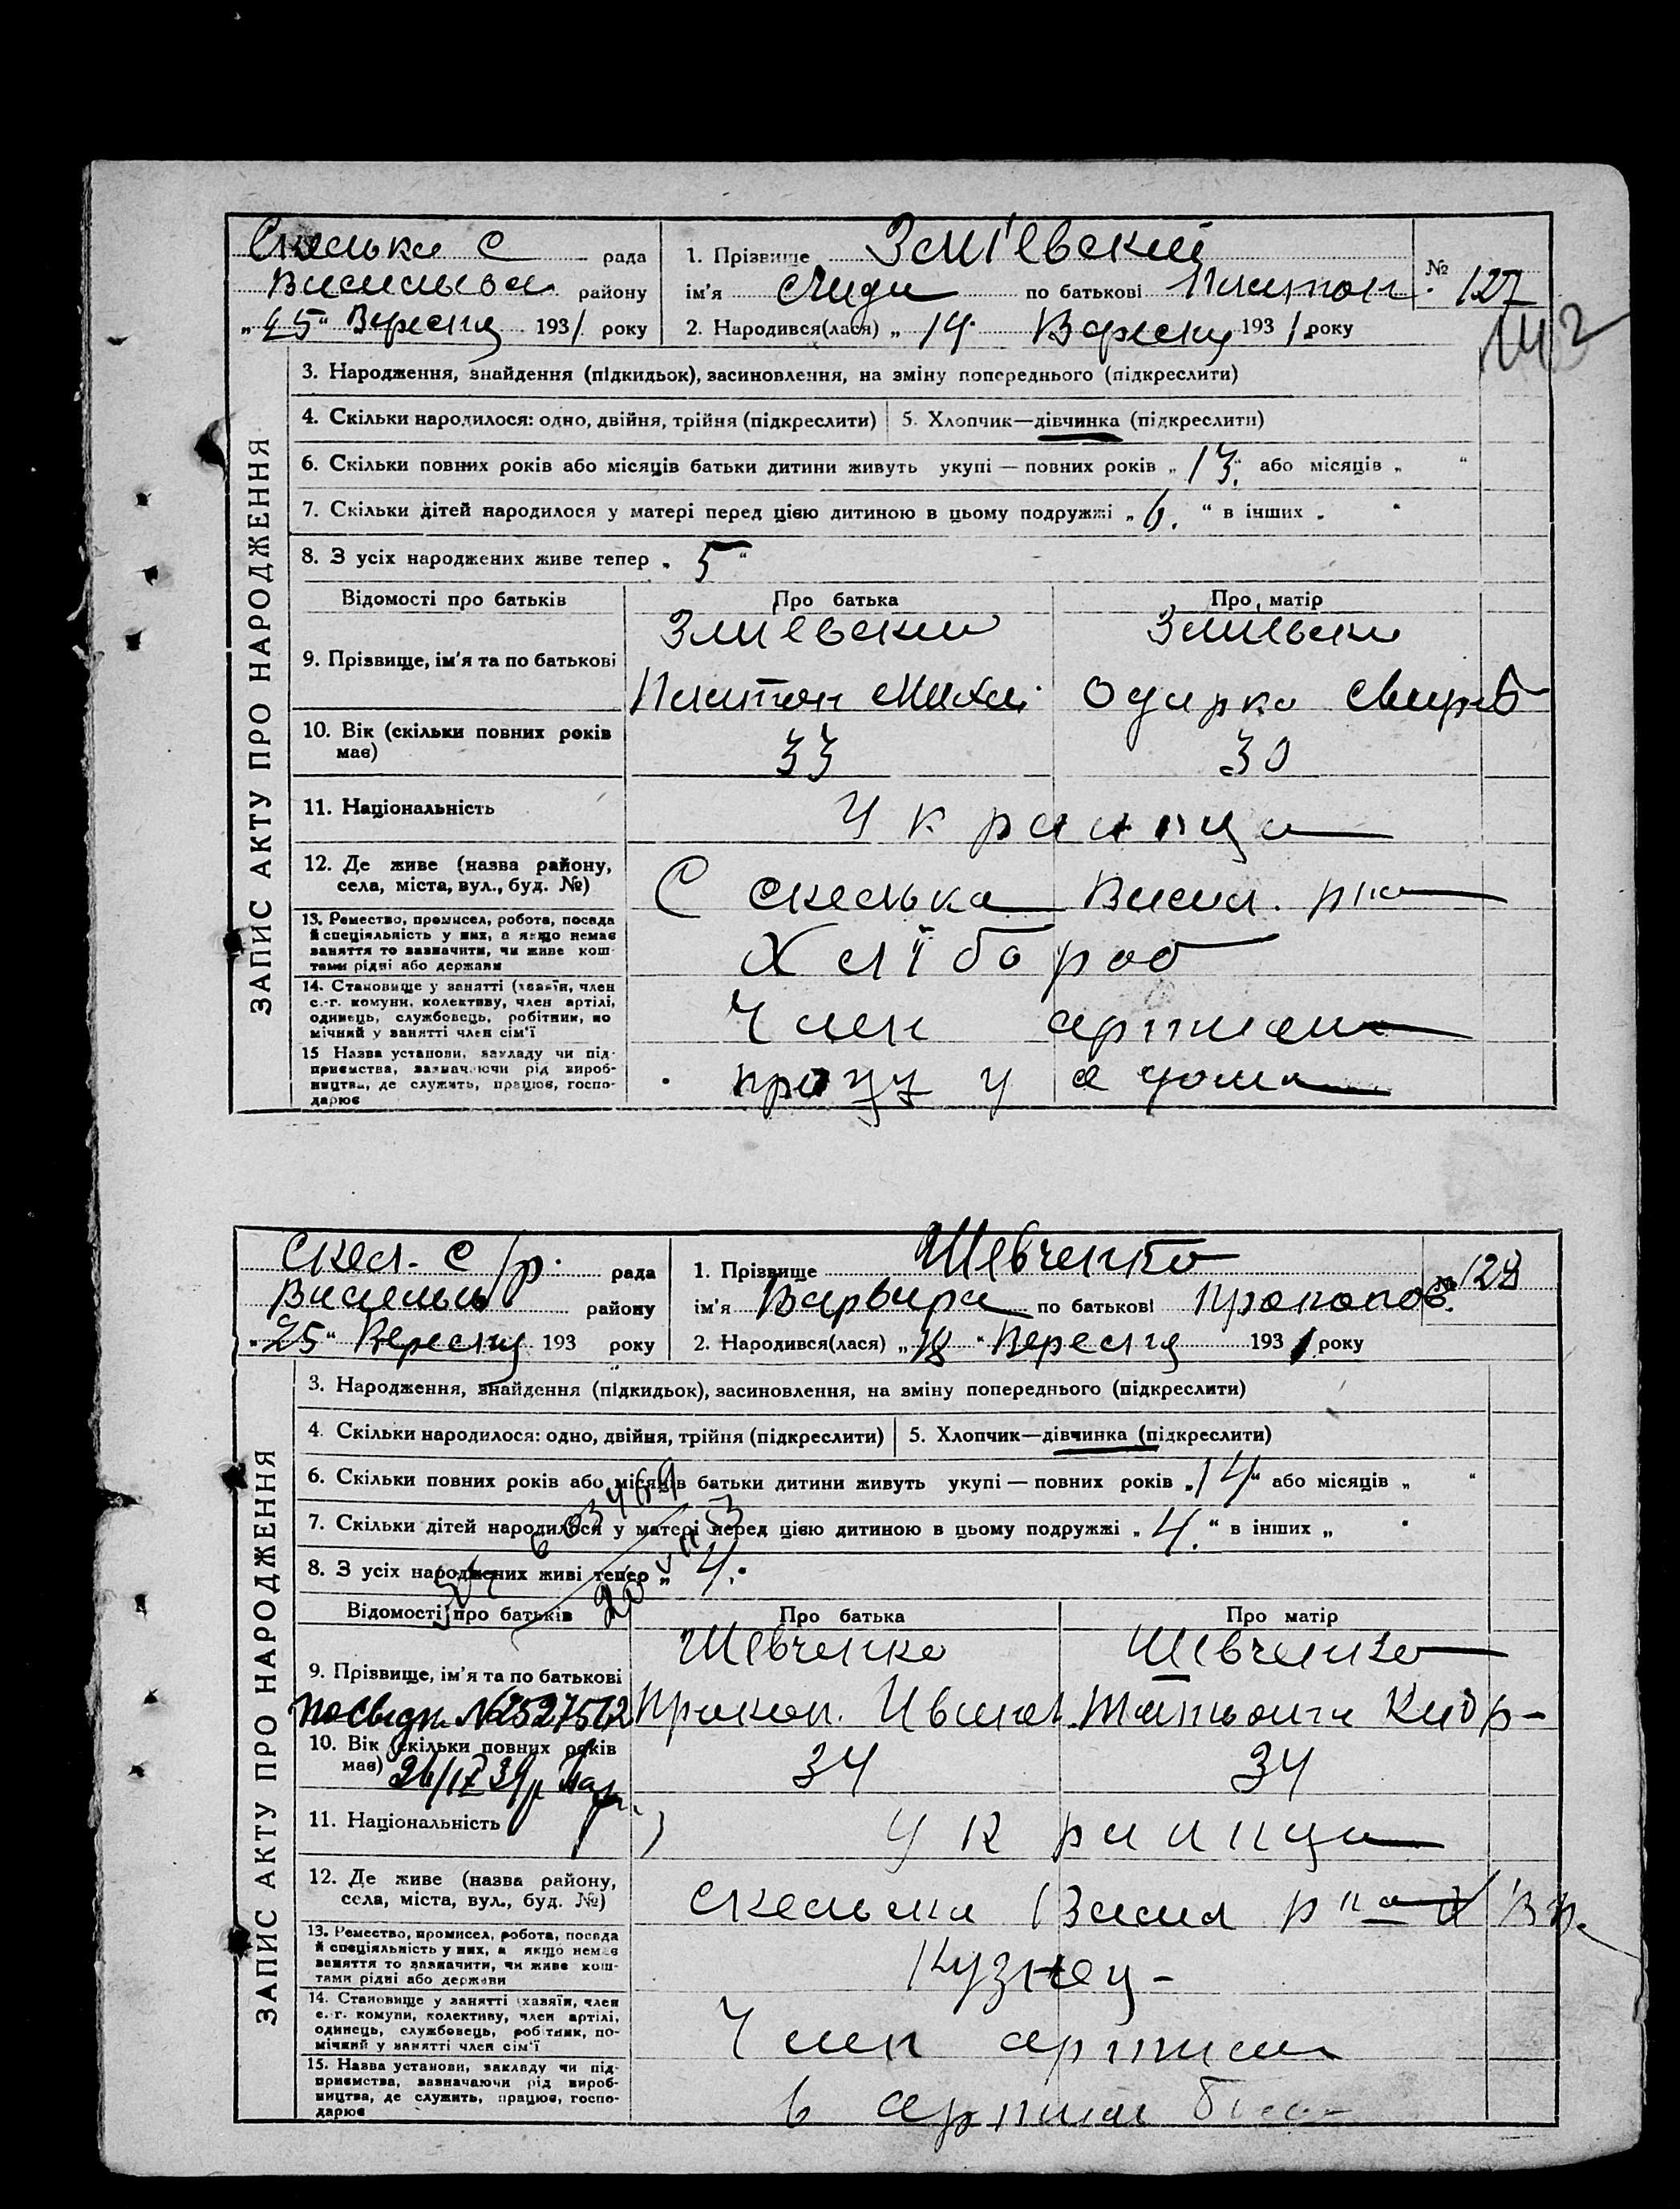 Скельки С рада
Васильев района району
„25“ Вересня 1931 року
1. Прізвище Зміевский
ім'я Лида по батькові Платон.
№ 127
2. Народився(лася) „14“ Вересня 1931 року
142
ЗАПИС АКТУ ПРО НАРОДЖЕННЯ
3. Народження, знайдення (підкидьок), засиновлення, на зміну попереднього (підкреслити)
4. Скільки народилося: одно, двійня, трійня (підкреслити) 5. Хлопчик—дівчинка (підкреслити)
6. Скільки повних років або місяців батьки дитини живуть укупі — повних років „13.“ або місяців „ “
7. Скільки дітей народилося у матері перед цією дитиною в цьому подружжі „6.“ в інших „ “
8. З усіх народжених живе тепер „5“
Відомості про батьків Про батька Про матір
Змиевский Змиевска
9. Прізвище, ім'я та по батькові
Платон Михай. Одарка
10. Вік (скільки повних років має) 33 30
11. Національність Украинца
12. Де живе (назва району, села, міста, вул., буд. №) С Скелька Васил. р на
13. Ремество, промисел, робота, посада й спеціяльність у них, а якщо немає заняття то зазначити, чи живе коштами рідні або держави Хлїбороб
14. Становище у занятті (хазяїн, член с.-г. комуни, колективу, член артілі, одинець, службовець, робітник, помічний у занятті член сім'ї Член артили
15 Назва установи, закладу чи підприємства, зазначаючи рід виробництва, де служить, працює, господарює
Скел. с/р. рада
району
„25“ Вересня 193 року
1. Прізвище Шевченко
ім'я Варвара по батькові Прокопов.
№ 128
2. Народився(лася) „18“ Вересня 1931 року
ЗАПИС АКТУ ПРО НАРОДЖЕННЯ
3. Народження, знайдення (підкидьок), засиновлення, на зміну попереднього (підкреслити)
4. Скільки народилося: одно, двійня, трійня (підкреслити) 5. Хлопчик—дівчинка (підкреслити)
6. Скільки повних років або місяців батьки дитини живуть укупі — повних років „14“ або місяців „ “
7. Скільки дітей народилося у матері перед цією дитиною в цьому подружжі „4.“ в інших „ “
8. З усіх народжених живі тепер „4.
Відомості про батьків Про батька Про матір
Шевченко Шевченко
9. Прізвище, ім'я та по батькові
Прокоп. Иванов. Татьяна
10. Вік (скільки повних років має) 34 34
11. Національність Украинца
12. Де живе (назва району, села, міста, вул., буд. №) Скельки Васил р на
13. Ремество, промисел, робота, посада й спеціяльність у них, а якщо немає заняття то зазначити, чи живе коштами рідні або держави Кузнец-
14. Становище у занятті (хазяїн, член с.-г. комуни, колективу, член артілі, одинець, службовець, робітник, помічний у занятті член сім'ї Член артили
15. Назва установи, закладу чи підприємства, зазначаючи рід виробництва, де служить, працює, господарює в артили